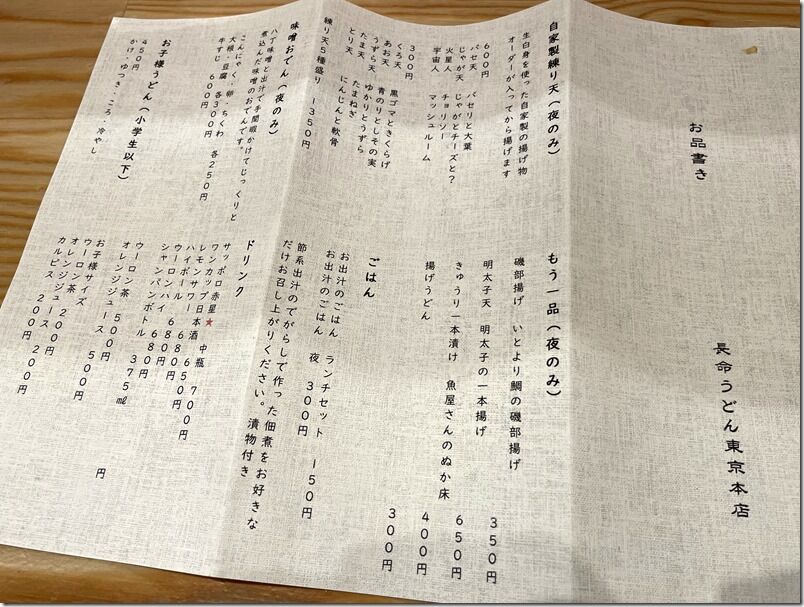 お品書き
長命うどん東京本店
自家製練り天（夜のみ）
生白身を使った自家製の揚げ物
オーダーが入ってから揚げます
６００円
パセ天　パセリと大葉
じゃが天　じゃがとチーズと？
火星人　チョリソー
宇宙人　マッシュルーム
３００円
くろ天　黒ゴマときくらげ
あお天　青のりとしその実
うずら天　ゆかりとうずら
たま天　たまねぎ
とり天　にんじんと軟骨
練り天５種盛り　１３５０円
味噌おでん（夜のみ）
八丁味噌と出汁で手間暇かけてじっくりと
煮込んだ味噌のおでんです。
こんにゃく・卵・ちくわ　各２５０円
大根・豆腐　各３００円
牛すじ　６００円
お子様うどん（小学生以下）
４５０円
かけ・ゆつき・ころ・冷やし
もう一品（夜のみ）
磯部揚げ　いとより鯛の磯部揚げ　３５０円
明太子天　明太子の一本揚げ　６５０円
きゅうり一本漬け　魚屋さんのぬか床　４００円
揚げうどん　３００円
ごはん
お出汁のごはん　ランチセット　１５０円
お出汁のごはん　夜　３００円
節系出汁のでがらしで作った佃煮をお好きな
だけお召し上がりください。　漬物付き
ドリンク
サッポロ赤星★　中瓶　７００円
ワンカップ日本酒　６５０円
レモンサワー　６８０円
ハイボール　６８０円
ウーロンハイ　６８０円
シャンパンボトル　３７５㎖　円
ウーロン茶
オレンジジュース　５００円
お子様サイズ　５００円
ウーロン茶　２００円
オレンジジュース　２００円
カルピス　２００円